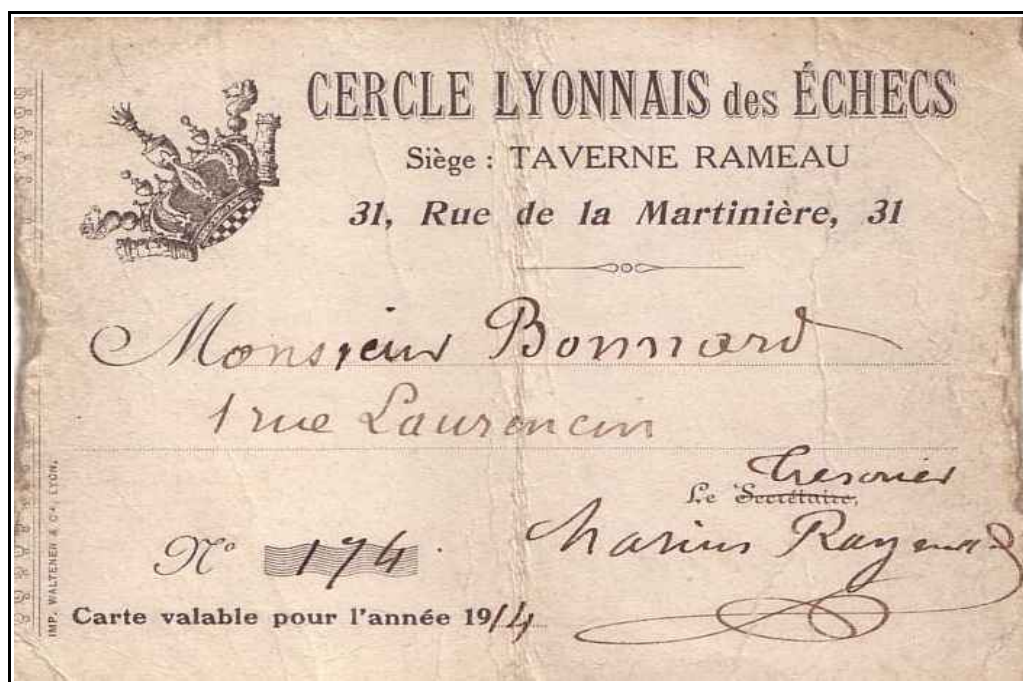 CERCLE LYONNAIS des ÉCHECS
Siège : TAVERNE RAMEAU
31, Rue de la Martinière, 31
Monsieur Bonnard
1 rue Laurencin
Tresorier
Le Secrétaire,
Marius
N° 174.
Carte valable pour l'année 1914
IMP. WALTENER & Cie LYON.